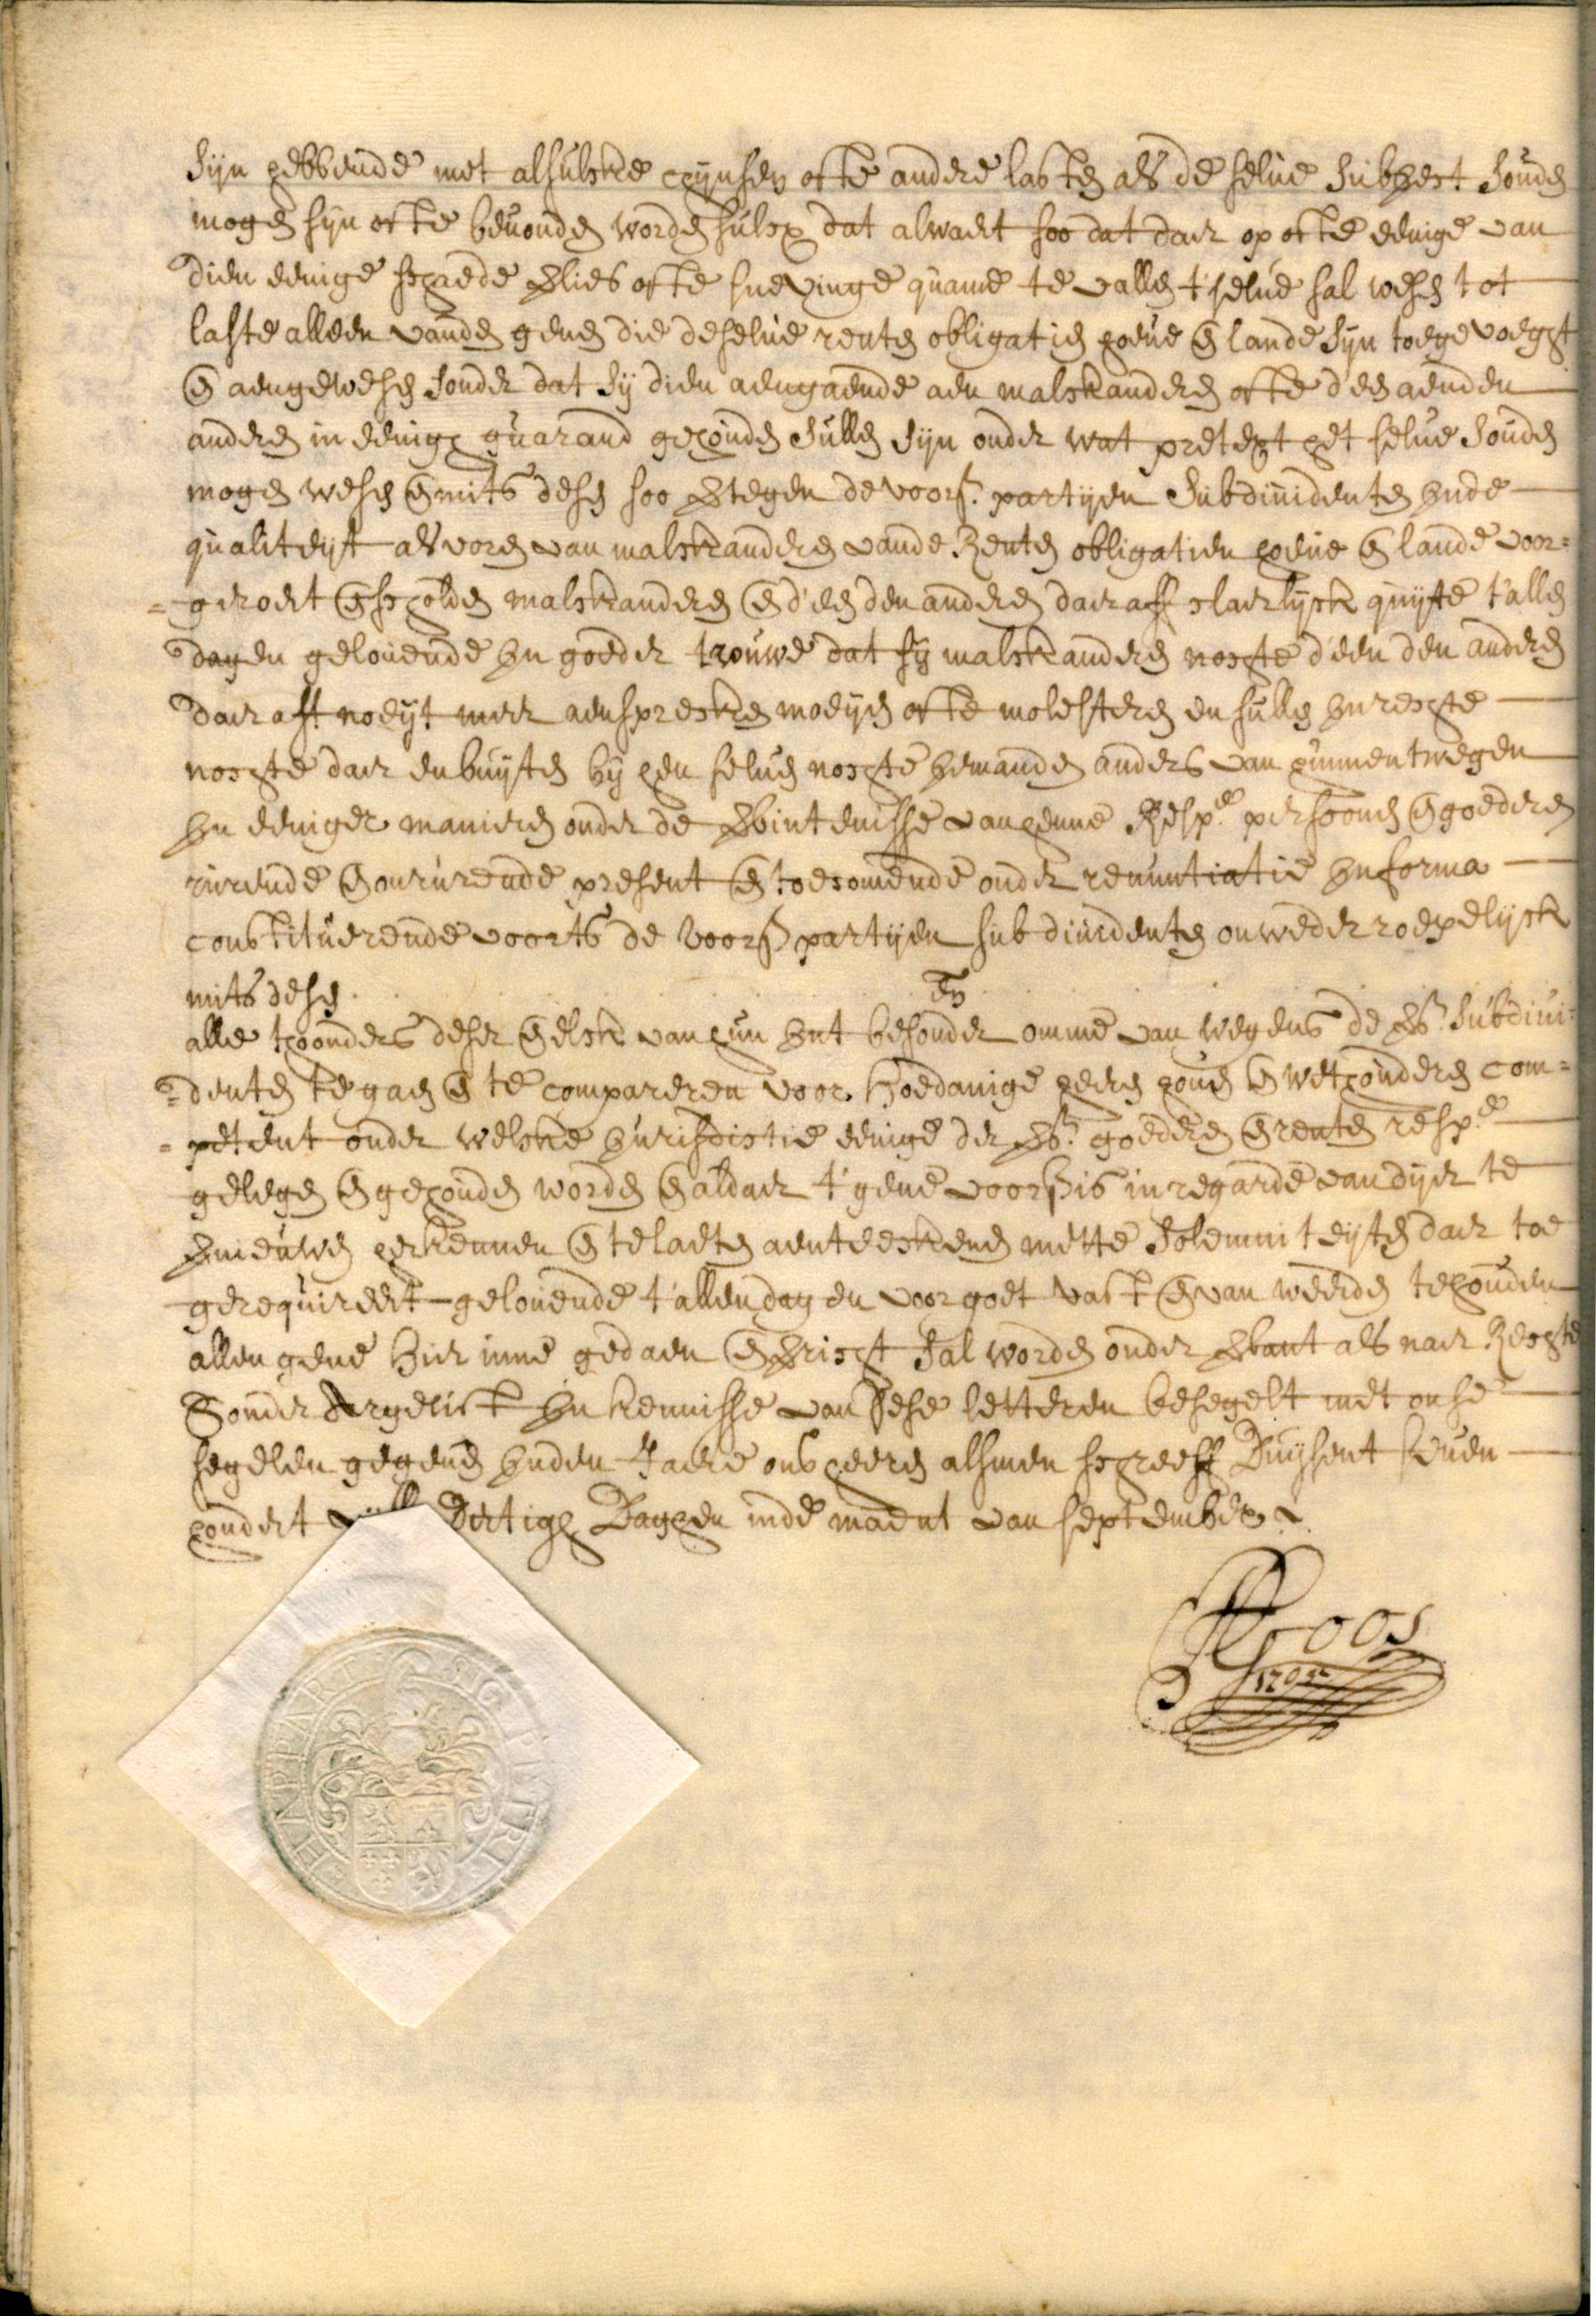 sijn hebbende met alsulcke chijnsen ofte andere lasten als de selue subject souden
mogen sijn ofte beuonden worden sulcx dat alwaert soo dat daer op ofte eenige van
dien eenige schaede verlies ofte quame te vallen t'selue sal wesen tot
laste alleen vanden genen die deselue renten obligatien hoeue en lande sijn toegevoeght
en aengewesen sonder dat sij dien aengaende aen malckanderen ofte d'een aenden
anderen in eenigh guarand gehouden sullen sijn onder wat pretext het selue souden
mogen wesen en mits desen soo vertegen de voors. partijen subdiuidenten inde
qualiteijt als voren van malckanderen vande Renten obligatien hoeue en lande voor=
=geroert en scholden malckanderen en d'een den anderen daer aff claerlijck quijte t'allen
dagen gelouende in goeder trouwe dat sij malckanderen nochte d'een den anderen
daer aff noeijt meer aenspreecken moeijen ofte molesteren en sullen in rechte
nochte daer en buijten bij hen seluen nochte iemanden anders van hunnen twegen
in eeniger manieren onder de verbintenisse van henne Respe. persoonen en goederen
rurende en onrurende present en toecomende onder renuntiatie in forma
constituerende voorts de voors partijen subdiuidenten onwederroepelijck
mits desen
alle thoonders deser en elck van hun int besonder omme van wegens de vs. subdiui=
en
=denten te gaen en te compareren voor hoedanige heeren houen en wethouderen com=
=petent onder welcke jurisdictie eenige der vs. goederen en renten respe.
gelegen en gehouden worden en aldaer t'gene voors is in regarde van dijer te
vernieuwen erkennen en te laeten aenteeckenen mette solemniteijten daer toe
gerequireert gelouende t'allen dagen voor goet vast en van weerden te houden
allen gene hier inne gedaen en vericht sal worden onder verbant als naer Rechte
Sonder Argelist in kennisse van dese letteren besegelt met onse
segelen gegeuen inden Jaere ons heeren alsmen schreeff Duijsent seuen
hondert Dertigh Daghen inde maent van september
Roos
1705
SIG PETRI HAPPART